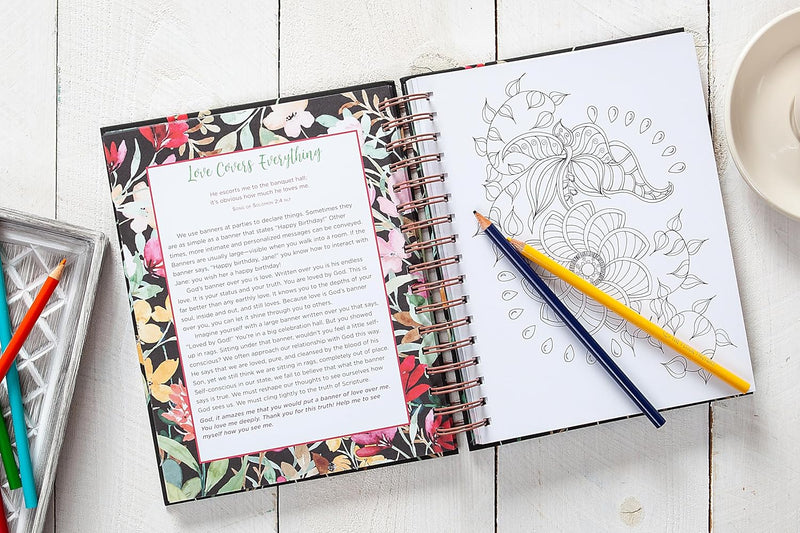 Love Covers Everything
He escorts me to the banquet hall;
it's obvious how much he loves me.
Song of Solomon 2:4 NLT
We use banners at parties to declare things. Sometimes they
are as simple as a banner that states "Happy Birthday!" Other
times, more intimate and personalized messages can be conveyed.
Banners are usually large—visible when you walk into a room. If the
banner says, "Happy birthday, Jane!" you know how to interact with
Jane: you wish her a happy birthday!
God's banner over you is love. Written over you is his endless
love. It is your status and your truth. You are loved by God. This is
far better than any earthly love. It knows you to the depths of the
soul, inside and out, and still loves. Because love is God's banner
over you, you can let it shine through you to others.
Imagine yourself with a large banner written over you that says,
"Loved by God!" You're in a big celebration hall. But you showed
up in rags. Sitting under that banner, wouldn't you feel a little self-
conscious? We often approach our relationship with God this way.
He says that we are loved, pure, and cleansed by the blood of his
Son, yet we still think we are sitting in rags, completely out of place.
Self-conscious in our state, we fail to believe that what the banner
says is true. We must reshape our thoughts to see ourselves how
God sees us. We must cling tightly to the truth of Scripture.
God, it amazes me that you would put a banner of love over me.
You love me deeply. Thank you for this truth! Help me to see
myself how you see me.